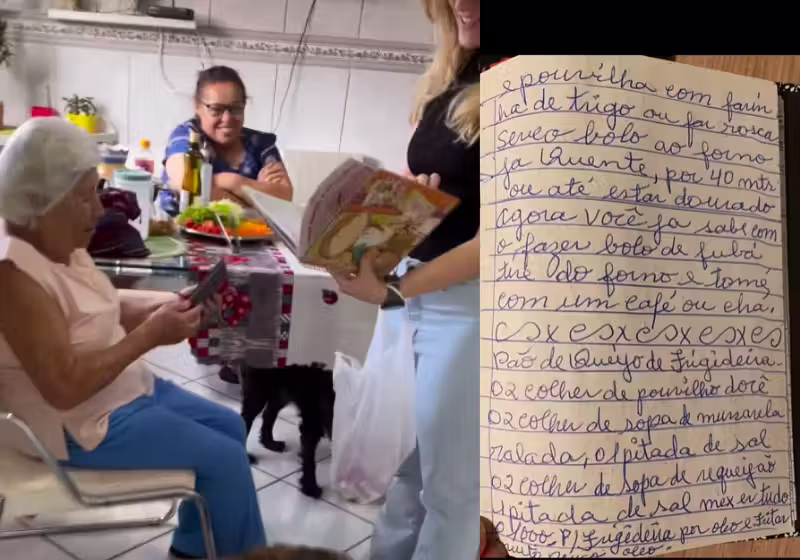 e pouvilha com farin
ha de trigo ou far rosca
seveo bolo ao forno
ja Quente, por 40 mts
ou até estar dourado
agora você ja sabe com
o fazer bolo de fubá
tire do forno e tome
com um café ou cha.
Pão de Queijo de Frigideira.
02 colher de pouvilho docê
02 colher de sopa de mussarela
ralada, 01 pitada de sal
02 colher de sopa de requeijão
1 pitada de sal mexer tudo
P/ Frigideira por oleo e Fritar
oleo.